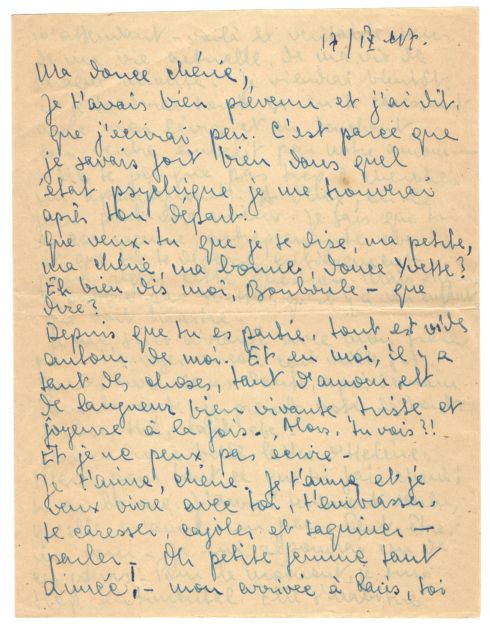 17/IX 47.
Ma douce chérie,
Je t'avais bien prévenu et j'ai dit,
que j'écrirai peu. C'est parce que
je savais fort bien dans quel
état psychique je me trouverai
après ton départ.
Que veux-tu que je te dise, ma petite,
ma chérie, ma bonne, douce Yvette?
Eh bien dis moi, Bonboule – que
dire?
Depuis que tu es partie, tout est vide
autour de moi. Et en moi, il y a
tant des choses, tant d'amour et
de langueur bien vivante triste et
joyeuse à la fois. Alors, tu vois?!
Et je ne peux pas écrire –
Je t'aime, chérie. Je t'aime et je
veux vivre avec toi, t'embrasser,
te caresser, cajoler et taquiner –
parler – Oh petite femme tant
aimée! – mon arrivée à Paris, toi